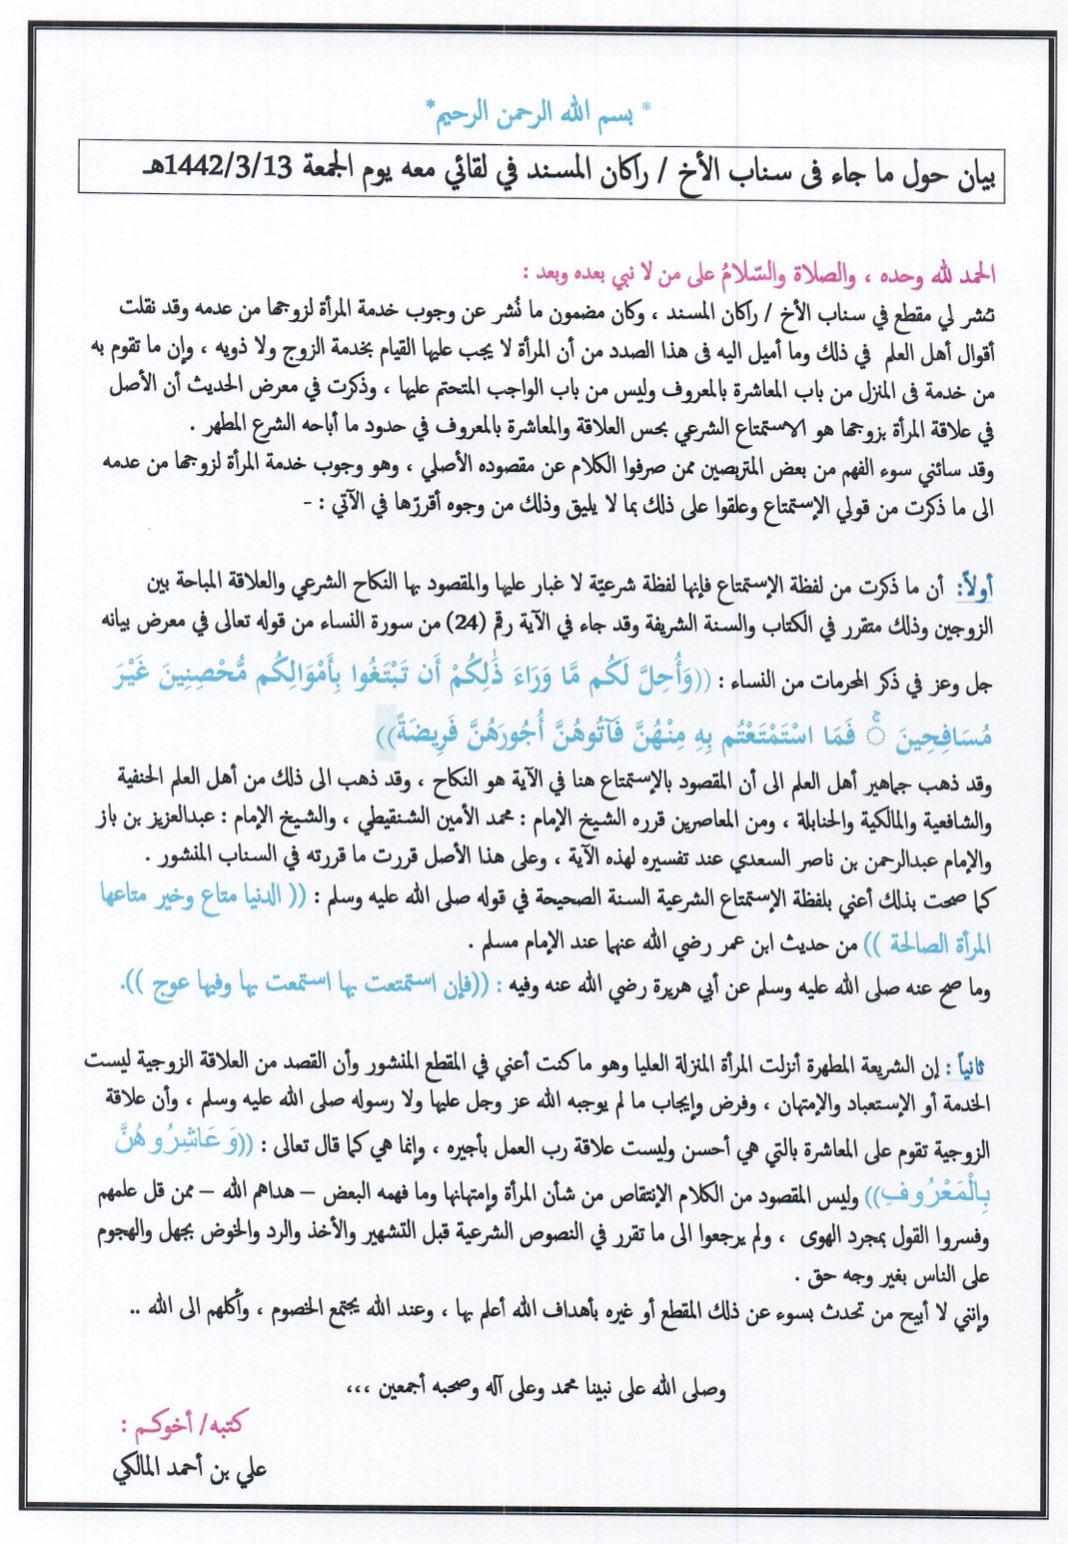 * بسم الله الرحمن الرحيم*
بيان حول ما جاء فى سناب الأخ / راكان المسند في لقائي معه يوم الجمعة 1442/3/13هـ
الحمد لله وحده ، والصلاة والسّلامُ على من لا نبي بعده وبعد :
نشر لي مقطع في سناب الأخ / راكان المسند ، وكان مضمون ما نُشر عن وجوب خدمة المرأة لزوجها من عدمه وقد نقلت
أقوال أهل العلم في ذلك وما أميل اليه فى هذا الصدد من أن المرأة لا يجب عليها القيام بخدمة الزوج ولا ذويه ، وإن ما تقوم به
من خدمة فى المنزل من باب المعاشرة بالمعروف وليس من باب الواجب المتحتم عليها ، وذكرت في معرض الحديث أن الأصل
في علاقة المرأة بزوجها هو الاستمتاع الشرعي بحس العلاقة والمعاشرة بالمعروف في حدود ما أباحه الشرع المطهر .
وقد سائني سوء الفهم من بعض المتربصين ممن صرفوا الكلام عن مقصوده الأصلي ، وهو وجوب خدمة المرأة لزوجها من عدمه
الى ما ذكرت من قولي الإستمتاع وعلقوا على ذلك بما لا يليق وذلك من وجوه أقررّها في الآتي : -
أولاً: أن ما ذكرت من لفظة الإستمتاع فإنها لفظة شرعيّة لا غبار عليها والمقصود بها النكاح الشرعي والعلاقة المباحة بين
الزوجين وذلك متقرر في الكتاب والسنة الشريفة وقد جاء في الآية رقم (24) من سورة النساء من قوله تعالى في معرض بيانه
جل وعز في ذكر المحرمات من النساء : ((وَأُحِلَّ لَكُم مَّا وَرَاءَ ذَٰلِكُمْ أَن تَبْتَغُوا بِأَمْوَالِكُم مُّحْصِنِينَ غَيْرَ
مُسَافِحِينَ ۚ فَمَا اسْتَمْتَعْتُم بِهِ مِنْهُنَّ فَآتُوهُنَّ أُجُورَهُنَّ فَرِيضَةً))
وقد ذهب جماهير أهل العلم الى أن المقصود بالإستمتاع هنا في الآية هو النكاح ، وقد ذهب الى ذلك من أهل العلم الحنفية
والشافعية والمالكية والحنابلة ، ومن المعاصرين قرره الشيخ الإمام : محمد الأمين الشنقيطي ، والشيخ الإمام : عبدالعزيز بن باز
والإمام عبدالرحمن بن ناصر السعدي عند تفسيره لهذه الآية ، وعلى هذا الأصل قررت ما قررته في السناب المنشور .
كما صحت بذلك أعني بلفظة الإستمتاع الشرعية السنة الصحيحة في قوله صلى الله عليه وسلم : (( الدنيا متاع وخير متاعها
المرأة الصالحة )) من حديث ابن عمر رضي الله عنهما عند الإمام مسلم .
وما صح عنه صلى الله عليه وسلم عن أبي هريرة رضي الله عنه وفيه : ((فإن استمتعت بها استمعت بها وفيها عوج )).
ثانياً : إن الشريعة المطهرة أنزلت المرأة المنزلة العليا وهو ما كنت أعني في المقطع المنشور وأن القصد من العلاقة الزوجية ليست
الخدمة أو الإستعباد والإمتهان ، وفرض وإيجاب ما لم يوجبه الله عز وجل عليها ولا رسوله صلى الله عليه وسلم ، وأن علاقة
الزوجية تقوم على المعاشرة بالتي هي أحسن وليست علاقة رب العمل بأجيره ، وإنما هي كما قال تعالى : ((وَعَاشِرُوهُنَّ
بِالْمَعْرُوفِ)) وليس المقصود من الكلام الإنتقاص من شأن المرأة وإمتهانها وما فهمه البعض – هداهم الله – ممن قل علمهم
وفسروا القول بمجرد الهوى ، ولم يرجعوا الى ما تقرر في النصوص الشرعية قبل التشهير والأخذ والرد والخوض بجهل والهجوم
على الناس بغير وجه حق .
وإنني لا أبيح من تحدث بسوء عن ذلك المقطع أو غيره بأهداف الله أعلم بها ، وعند الله يجتمع الخصوم ، وأكلهم الى الله ..
وصلى الله على نبينا محمد وعلى آله وصحبه أجمعين ،،،
كتبه/ أخوكم :
علي بن أحمد المالكي